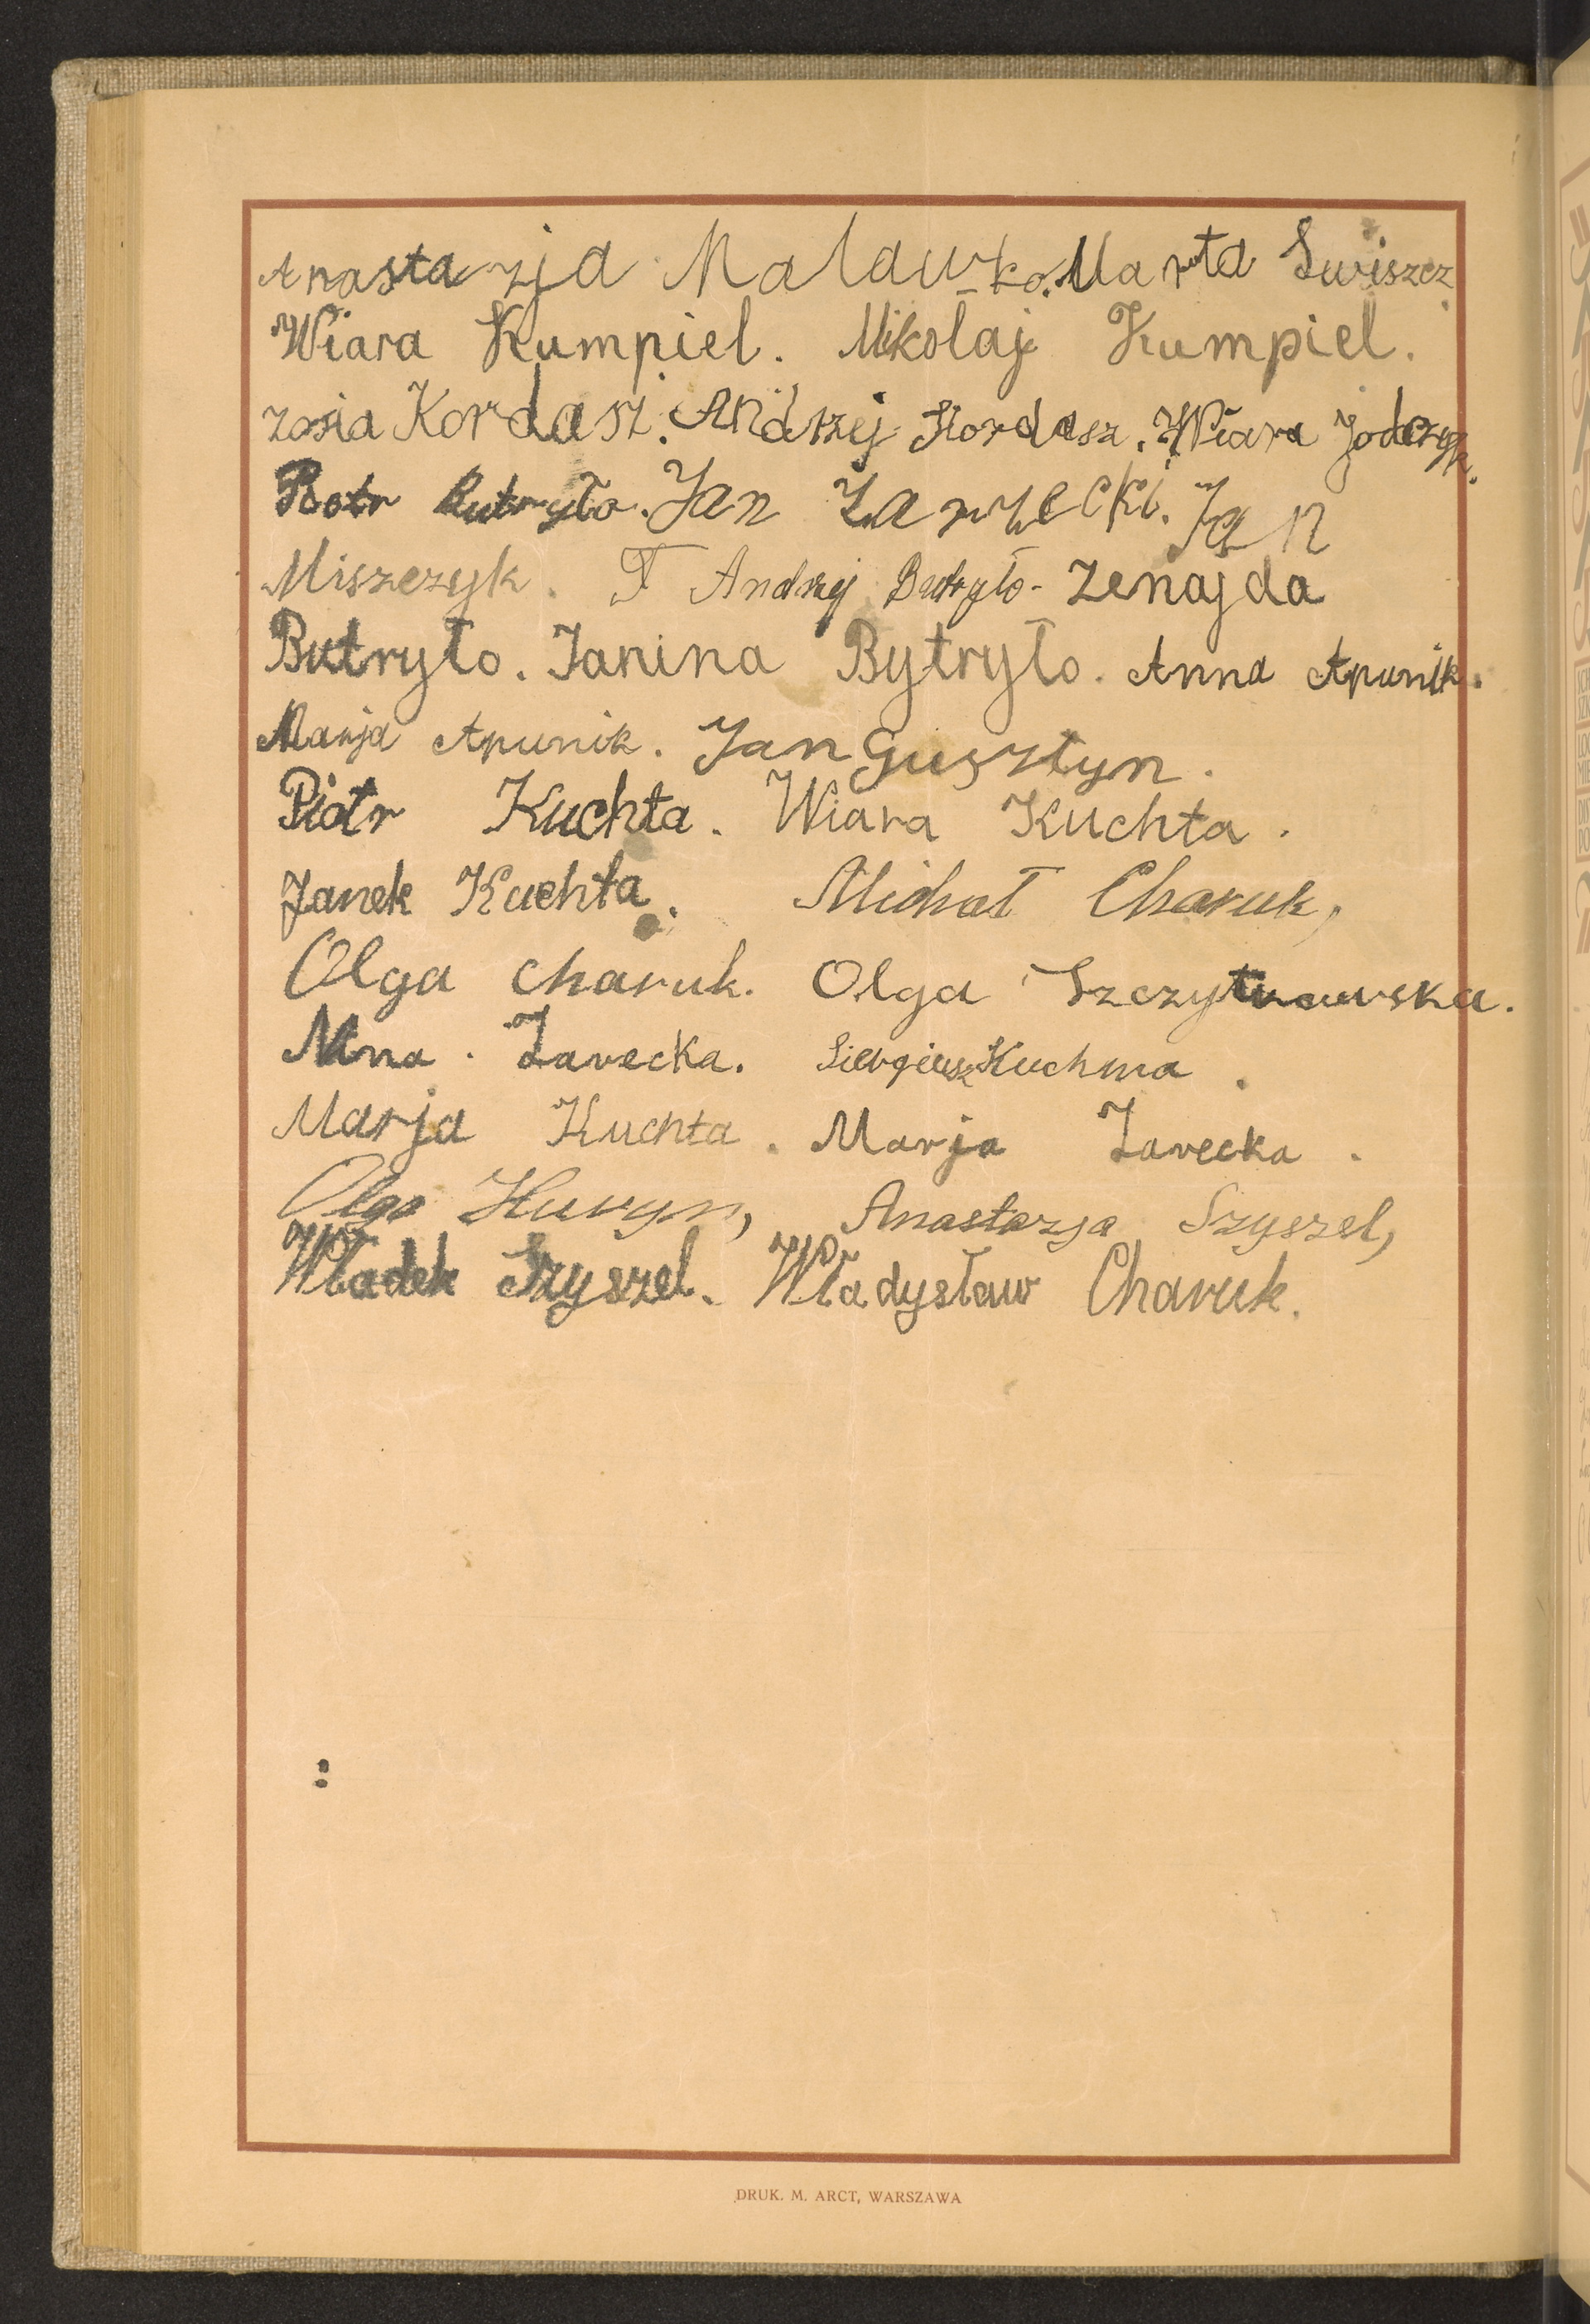 Anastazja Maławko. Marta Swiszcz
Wiara Kumpiel. Mikołaj Kumpiel.
Zosia Kordasz. Andrzej Kordasz. Wiara Jodczyk.
Piotr Butryło. Jan Zarzecki. Jan
Miszczyk. F Andrzej Butryło - Zenajda
Butryło. Janina Bytryło. Anna Apunik.
Marja Apunik. Jan Gusztyn.
Piotr Kuchta. Wiara Kuchta.
Janek Kuchta. Michał Charuk,
Olga Charuk. Olga
Nina. Zarecka. Siergiusz Kuchma.
Marja Kuchta. Marja Zarecka.
Olga Huryn, Anastazja Szyszel,
Władek Szyszel. Władysław Charuk.
:
DRUK. M. ARCT, WARSZAWA